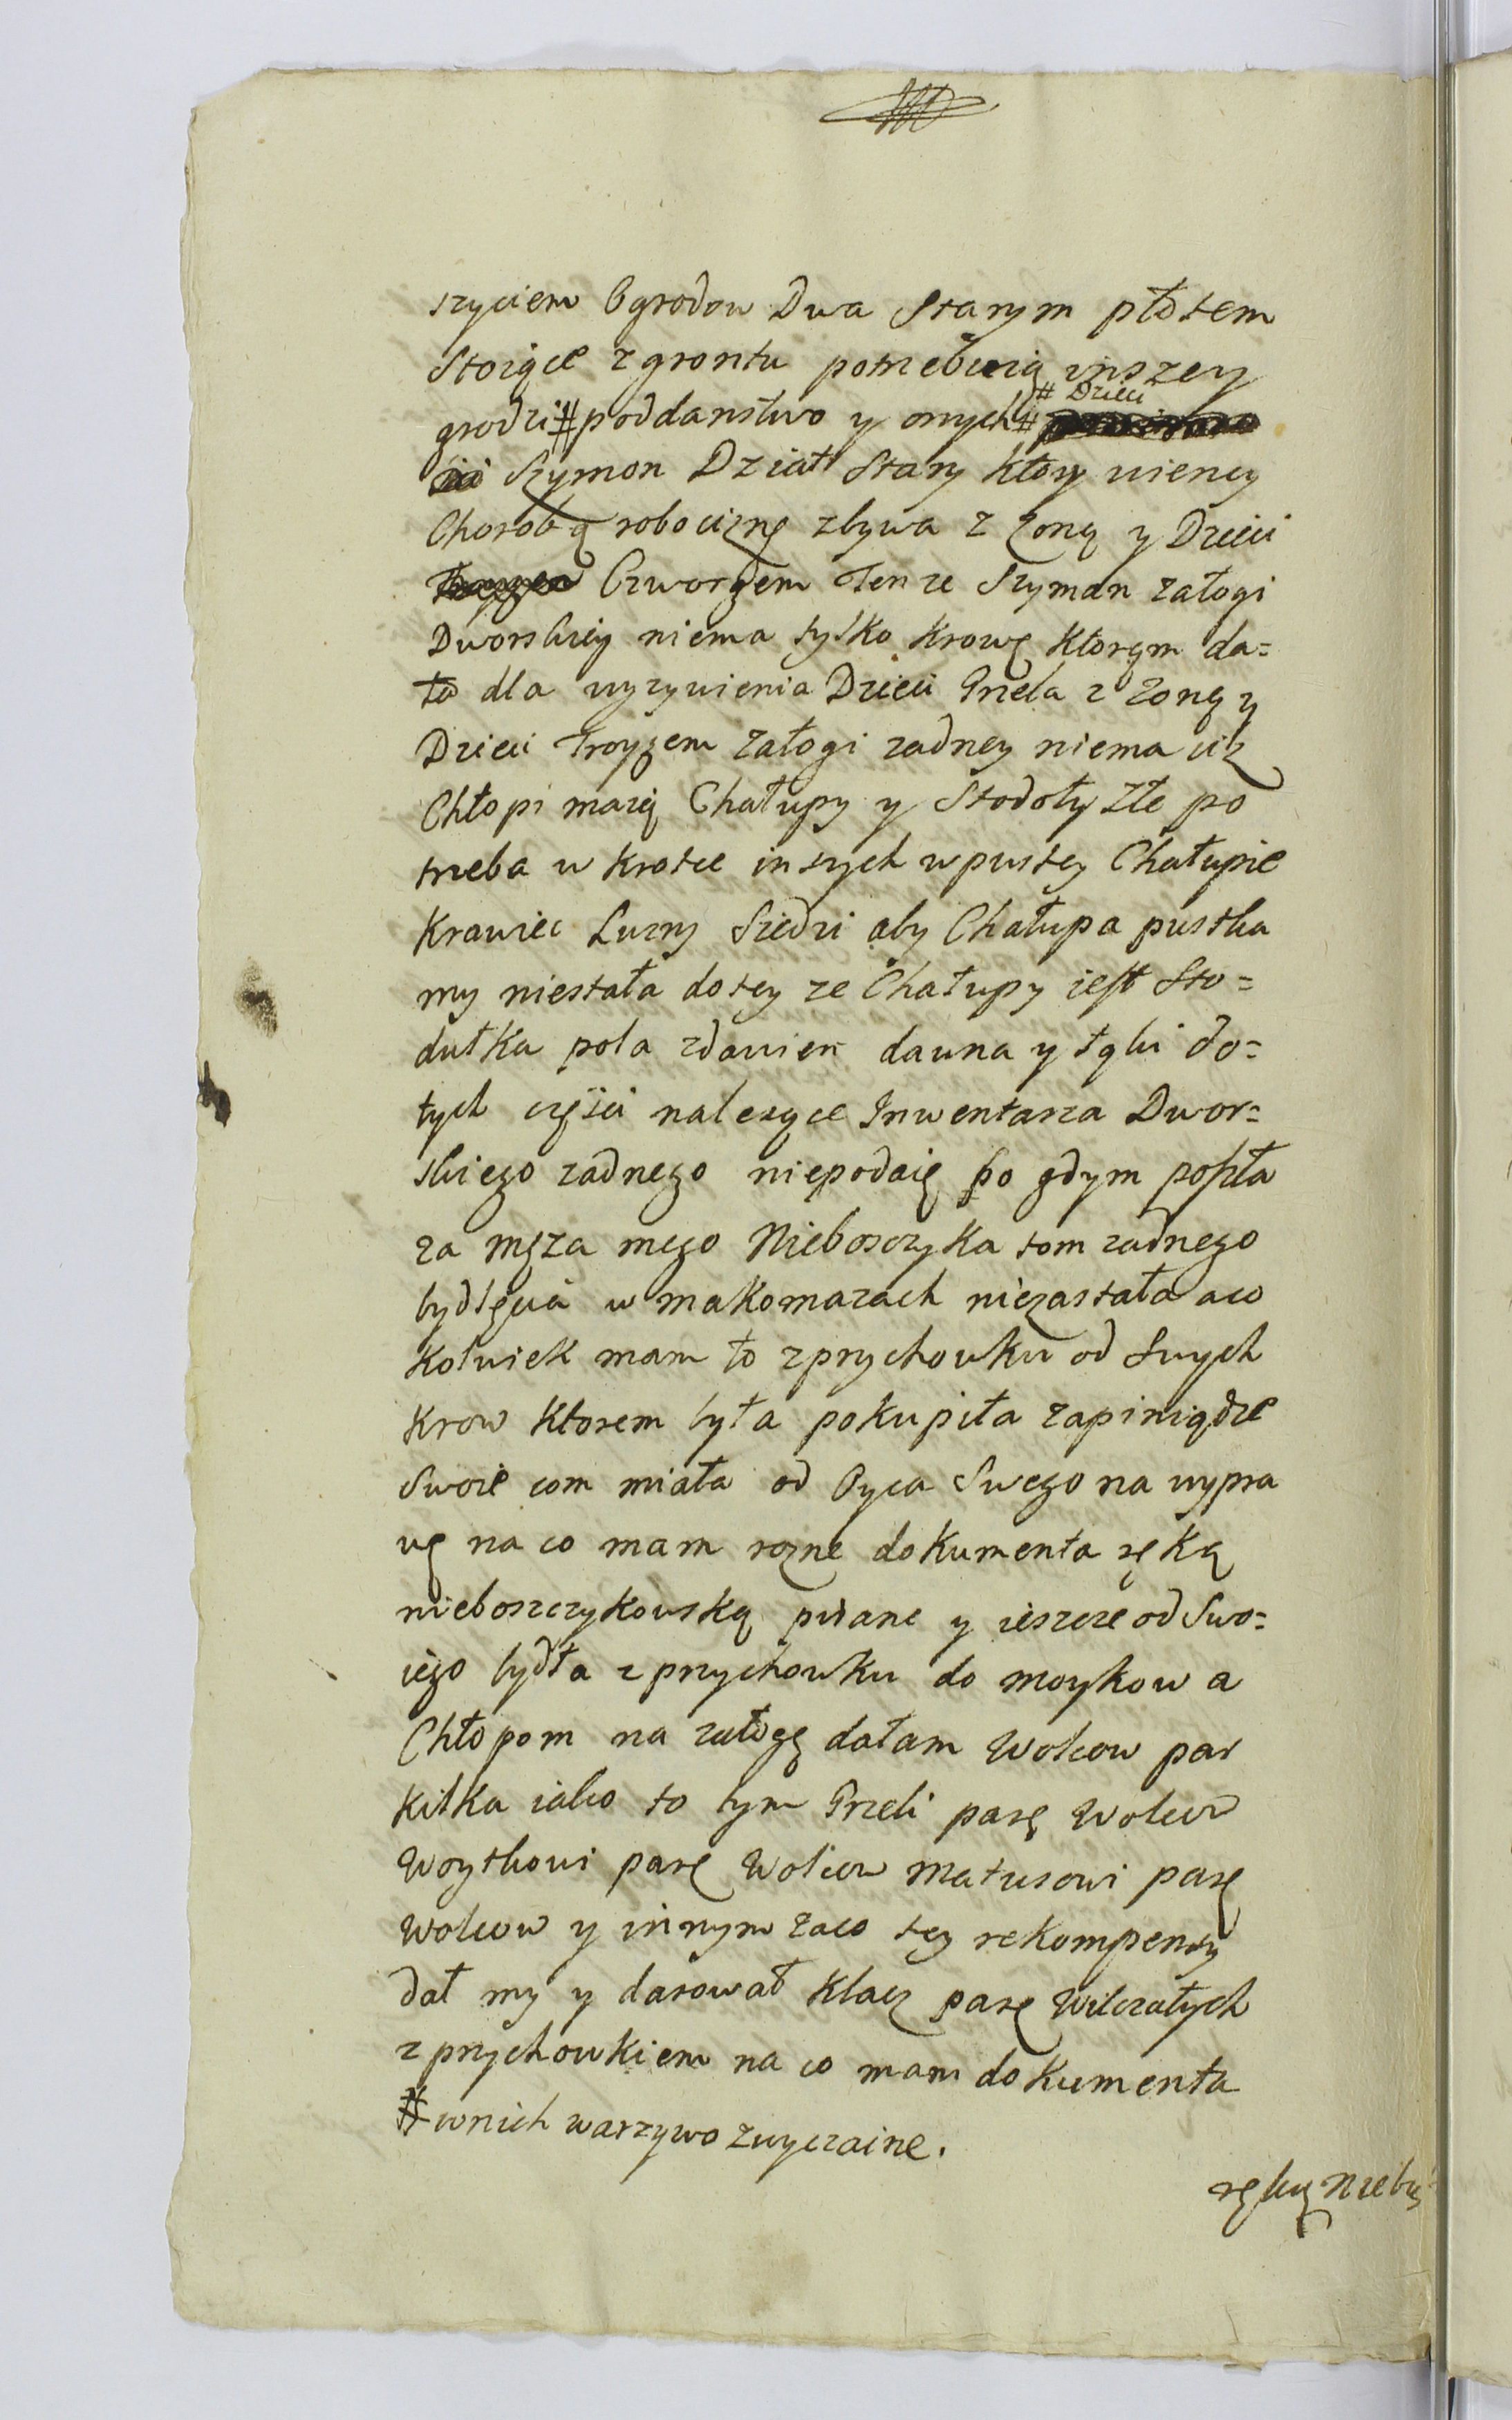 szyciem Ogrodow Dwa Starym płotem
Stoiące z grontu potrzebuią inszey
grodzi # poddanstwo y onych # # Dzieci
Szymon Dział Stary ktory wiency
Chorobą robociznę zbywa z żoną y Dzieci
Czworgem Tenze Szyman załogi
Dworskiey niema tylko krowę ktorąm da=
ła dla wyzywienia Dzieci Grzela z zoną y
Dzieci Troygem załogi zadney niema ciz
Chłopi maią Chałupy y Stodoły złe po
trzeba w krotce inszych w pustey Chałupie
Krawiec Luzny Siedzi aby Chałupa pustka
my niestała do tey ze Chałupy iest Sto=
dułka pola zdawien dawna y łąki do=
tych częsci nalezące Inwentarza Dwor=
skiego zadnego niepodaię bo gdym poszła
za męża mego Nieboszczyka tom zadnego
bydlęcia w makomazach niezastała aco
kolwiek mam to z prychowku od Swych
krow ktorem była pokupiła zapiniądze
Swoie com miała od Oyca Swego na wypra
wę na co mam rozne dokumenta ręką
nieboszczykowską pisane y ieszcze od Swo=
iego bydła z przychowku do moykow a
Chłopom na załogę dałam Wolcow par
kilka iako to tym Grzeli parę Wolcow
Woytkowi parę Wolcow Matusowi parę
Wolcow y innym zaco tey rekompensy
dał my y darował klacz parę Wilczatych
z przychowkiem na co mam dokumenta
# w nich warzywo zwyczaine.
ręką Niebosz